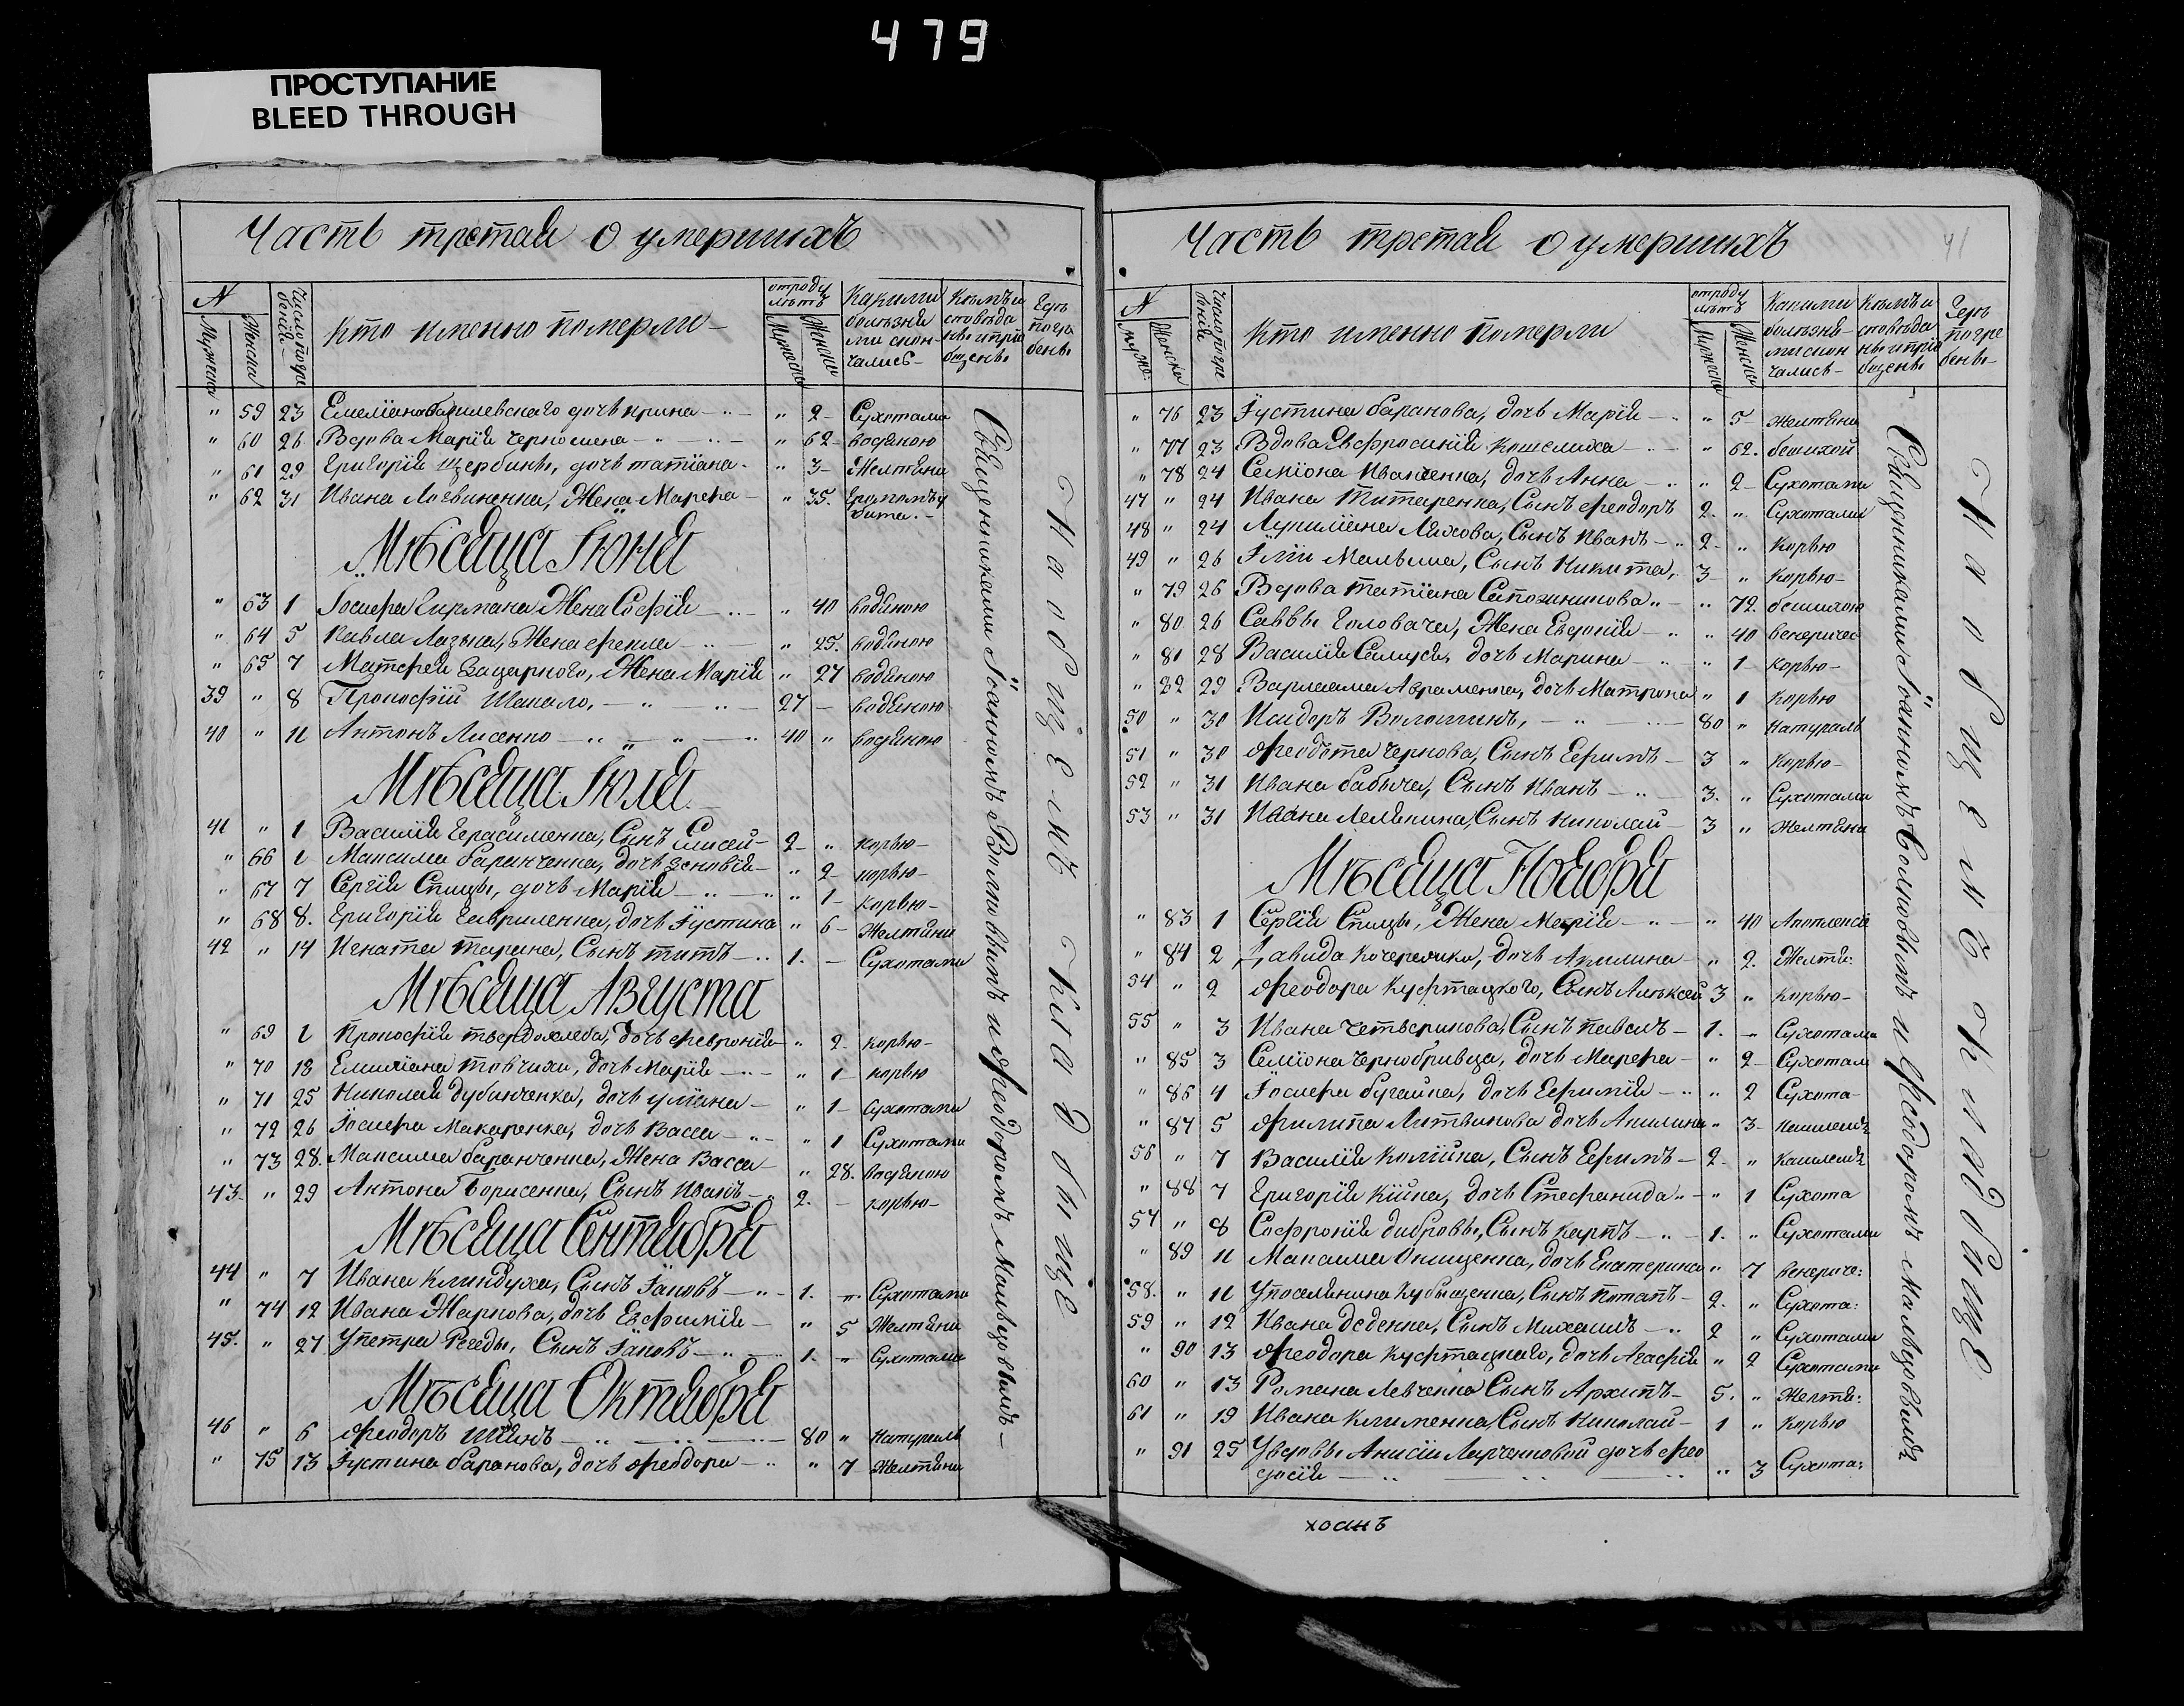 479
ПРОСТУПАНИЕ
BLEED THROUGH
Часть третая о умершихъ
N
Мужеска
Женска
Число погребенія
Кто именно померли
отроду лѣтъ
Мужеска
Женска
Какими
болѣзня
ми скон
чались
Кѣмъ и
сповѣда
ны и прiо
бщены
Гдѣ
погре
бены
" 59 23 дочь Ирина " 2 Сухотами
" 60 26 Вдова Марія " 62 водяною
" 61 29 Григорія Щербины, дочь татіана " 3 Желтяни
" 62 31 Ивана Логвиненка, Жена Марѳа " 35.
Мѣсяца Іюня
" 63 1 Іосифа Гирмана Жена Софія " 40 водяною
" 64 5 Павла Жена " 25. водяною
" 65 7 Матфея Жена Марія " 27 водяною
39 " 8 Прокофій Шапало, 27 водяною
40 " 11 Антонъ Лисенко 40 " водяною
Мѣсяца Іюля
41 " 1 Василія Герасименка, Сынъ Елисей 2 " корью
" 66 1 Максима Баранченка, дочь Зеновія " 2 корью
" 67 7 Сергія Спицы, дочь Марія " 1 корью
" 68 8. Григорія Гавриленка, дочь Іустина " 6 Желтяни
42 " 14 Игната Тарана, Сынъ титъ 1. Сухотами
Мѣсяца Августа
" 69 1 Прокофія твердохлеба, дочь Февронія " 2 корью
" 70 18 Емиліана товчихи, дочь Марія " 1 корью
" 71 25 Николая Дубинченка, дочь уліяна " 1 Сухотами
" 72 26 Іосифа Макаренка, дочь Васса " 1 Сухотами
" 73 28. Максима баранченка, Жена Васса " 28. водяною
43 " 29 Антона Борисенка, Сынъ Иванъ 2. корью
Мѣсяца Сентября
44 " 7 Ивана Клиндуха, Сынъ Іаковъ 1. " Сухотами
" 74 12 Ивана Жарнова, дочь Евфимія " 5 Желтяни
45. " 27 Упетра Регеды, Сынъ Іаковъ 1. " Сухотами
Мѣсяца Октября
46 " 6 Феодоръ 80 " Натураль
" 75 13 Іустина баранова, дочь Феодора " 7 Желтяни
Священниками Іоанномъ Волковымъ и Феодоромъ Мальцовымъ
На общемъ кладбищѣ
Часть третая о умершихъ
41
N
Муже:
Женска
Число погребенія
Кто именно померли
отроду лѣтъ
Мужеска
Женска
Какими
болѣзня
ми скон
чались
Кѣмъ и
сповѣда
ны и прiо
бщены
Гдѣ
погре
бены
" 76 23 Іустина баранова, дочь Марія " 5 Желтяни
" 77 23 Вдова Евфросинія Кошелиха " 62. бешихой
" 78 24 Семіона Иванченка, дочь Анна " 2 Сухотами
47 " 24 Ивана Титаренка, Сынъ Феодоръ 2. " Сухотами
48 " 24 Лукиліяна Ляхова, Сынъ Иванъ 2 " Корью
49 " 26 Іліи Малыша, Сынъ Никита, 3 " Корью
" 79 26 Вдова татіана Сапожникова " 72. бешихою
" 80 26 Саввы Головача, Жена Евдокія " 40 венеричес
" 81 28 Василія дочь Марина " 1 корью
" 82 29 Варлаама Авраменка, дочь Матрона " 1 корью
50 " 30 Исидоръ Волошинъ, 80 " Натураль
51 " 30 Феодота чернова, Сынъ Ефимъ 3 " Корью
52 " 31 Ивана бабыча, Сынъ Иванъ 3. " Сухотами
53 " 31 Ивана Лелякина, Сынъ Николай 3 " Желтяни
Мѣсяца Ноября
" 83 1 Сергія Спицы, Жена Марія " 40 Апоплексіе
" 84 2 Давида дочь Акилина " 2. Желтя:
54 " 2 Феодора Куфтацкого, Сынъ Алѣксей 3 " Корью
55 " 3 Ивана четверикова, Сынъ павелъ 1. " Сухотами
" 85 3 Семіона чернобривца, дочь Марѳа " 2 Сухотам
" 86 4 Іосифа бугайца, дочь Ефимія " 2 Сухота
" 87 5 Филипа Литвинова дочь Акилина " 3 кашлемъ
56 " 7 Василія Сынъ Ефимъ 2 " Кашлемъ
" 88 7 Григорія Кійка, дочь Стефанида " 1 Сухота
57 " 8 Софронія дибровы, Сынъ карпъ 1. " Сухотами
" 89 11 Максима Онищенка, дочь Екатерина " 7 венериче:
58. " 11 Упоселянина Кубыщенка, Сынъ Потапъ 2. " Сухота:
59 " 12 Ивана деденка, Сынъ Михаилъ 2 " Сухотами
" 90 13 Феодора Куфтацкаго, дочь Агафія " 2 Сухотами
60 " 13 Романа Левченка Сынъ Архипъ 5. " Желтя:
61 " 19 Ивана Клименка, Сынъ Николай 1 " Корью
" 91 25 Увдовы Анисіи Ларченковой дочь Фео
досія " 3 Сухота:
Священниками Іоанномъ Волковымъ и Феодоромъ Мальцовымъ
На общемъ кладбищѣ
хоанъ